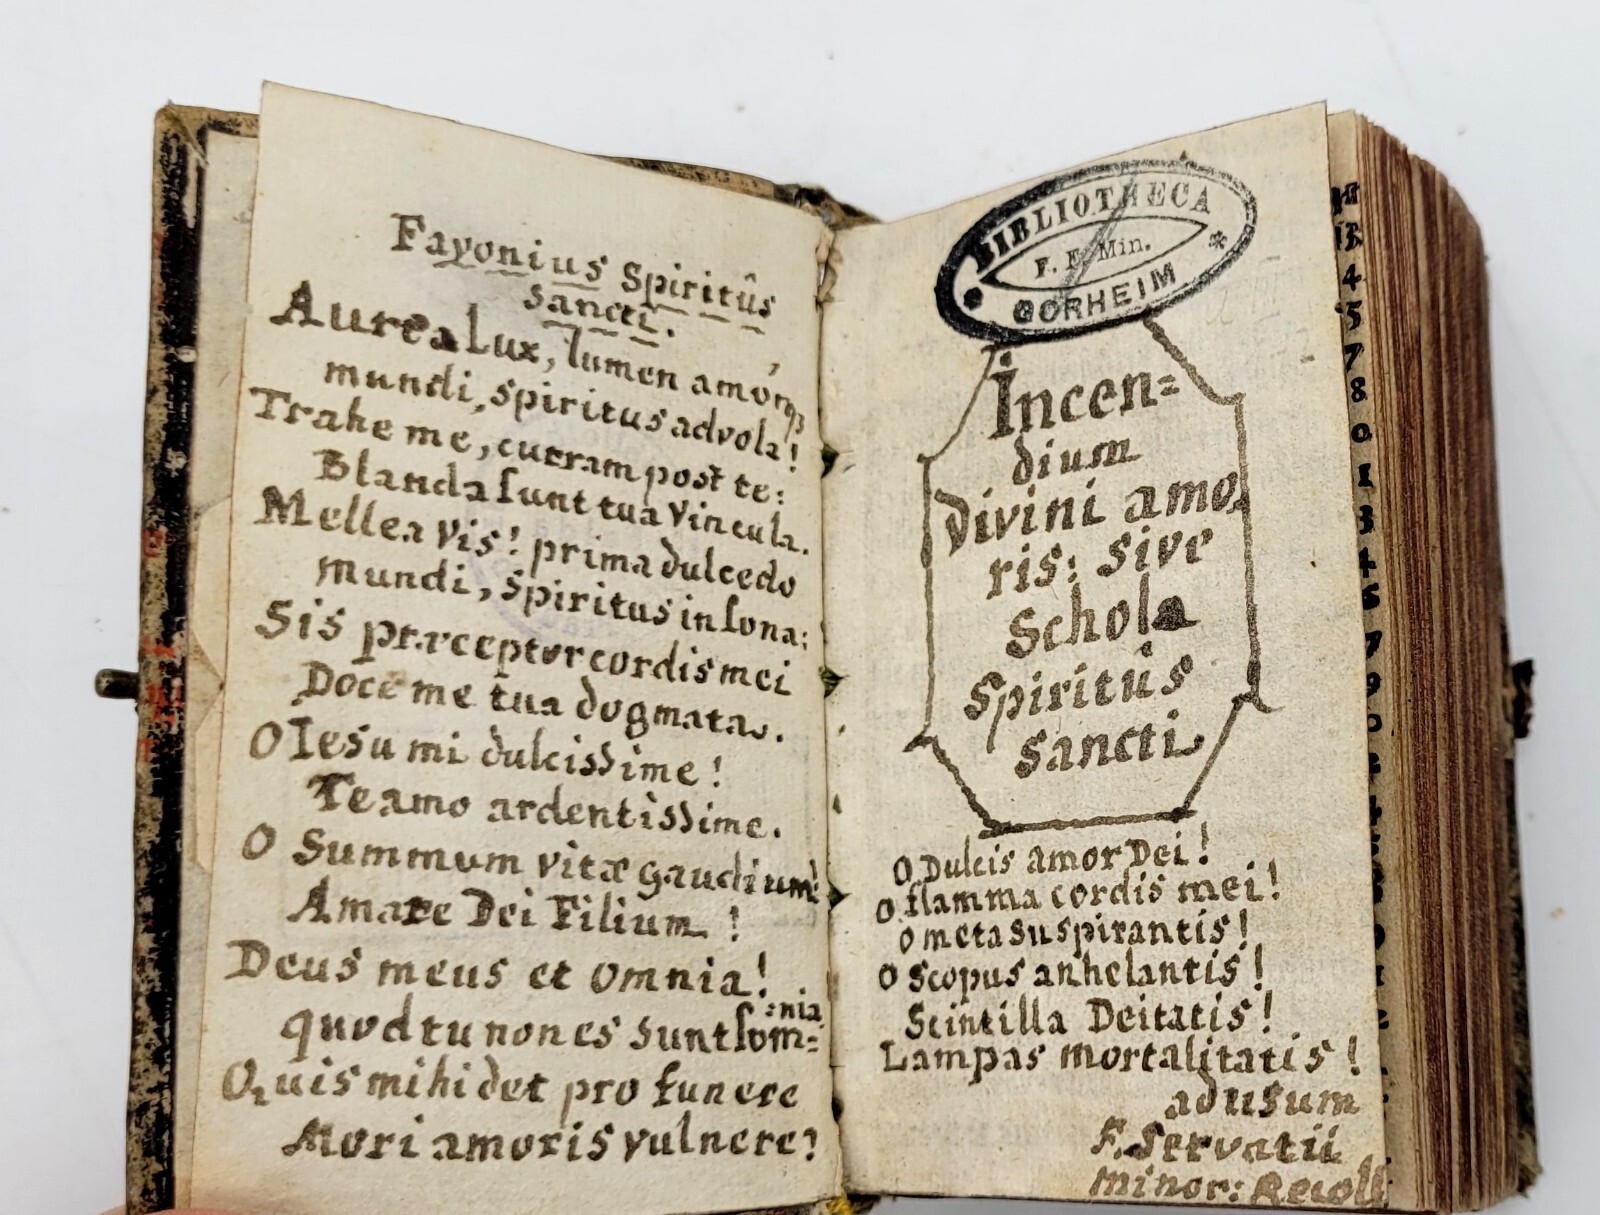 Favonius Spiritûs
Sancti.
Aurea Lux, lumen amorq3
mundi, spiritus advola!
Trahe me, curram post te:
Blanda sunt tua Vincula.
Mellea Vis! prima dulcedo
mundi, Spiritus insona:
Sis præceptor cordis mei
Doce me tua dogmata.
O Iesu mi dulcissime!
Te amo ardentissime.
O Summum vitæ gaudium!
Amare Dei Filium!
Deus meus et omnia!
quod tu non es sunt som=
=nia
Quis mihi det pro funere
Mori amoris vulnere?
BIBLIOTHECA
F. F. Min.
GORHEIM
Incen=
dium
Divini amo
ris: sive
Schola
Spiritûs
Sancti
O Dulcis amor Dei!
O flamma cordis mei!
O meta suspirantis!
O Scopus anhelantis!
Scintilla Deitatis!
Lampas mortalitatis!
ad usum
F. Servatii
Minor: Recoll